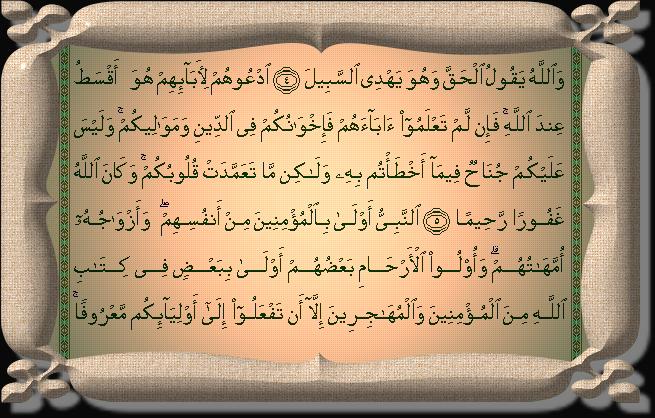 وَٱللَّهُ يَقُولُ ٱلْحَقَّ وَهُوَ يَهْدِى ٱلسَّبِيلَ ٤ ٱدْعُوهُمْ لِأَبَآئِهِمْ هُوَ أَقْسَطُ
عِندَ ٱللَّهِ ۚ فَإِن لَّمْ تَعْلَمُوٓا۟ ءَابَآءَهُمْ فَإِخْوَٰنُكُمْ فِى ٱلدِّينِ وَمَوَٰلِيكُمْ ۚ وَلَيْسَ
عَلَيْكُمْ جُنَاحٌ فِيمَآ أَخْطَأْتُم بِهِۦ وَلَٰكِن مَّا تَعَمَّدَتْ قُلُوبُكُمْ ۚ وَكَانَ ٱللَّهُ
غَفُورًا رَّحِيمًا ٥ ٱلنَّبِىُّ أَوْلَىٰ بِٱلْمُؤْمِنِينَ مِنْ أَنفُسِهِمْ ۖ وَأَزْوَٰجُهُۥٓ
أُمَّهَٰتُهُمْ ۗ وَأُو۟لُوا۟ ٱلْأَرْحَامِ بَعْضُهُمْ أَوْلَىٰ بِبَعْضٍ فِى كِتَٰبِ
ٱللَّهِ مِنَ ٱلْمُؤْمِنِينَ وَٱلْمُهَٰجِرِينَ إِلَّآ أَن تَفْعَلُوٓا۟ إِلَىٰٓ أَوْلِيَآئِكُم مَّعْرُوفًا ۚ